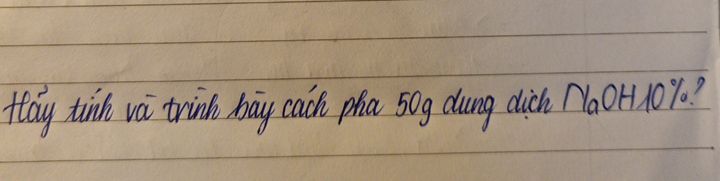 Hãy tính và trình bày cách pha 50g dung dịch NaOH 10%?